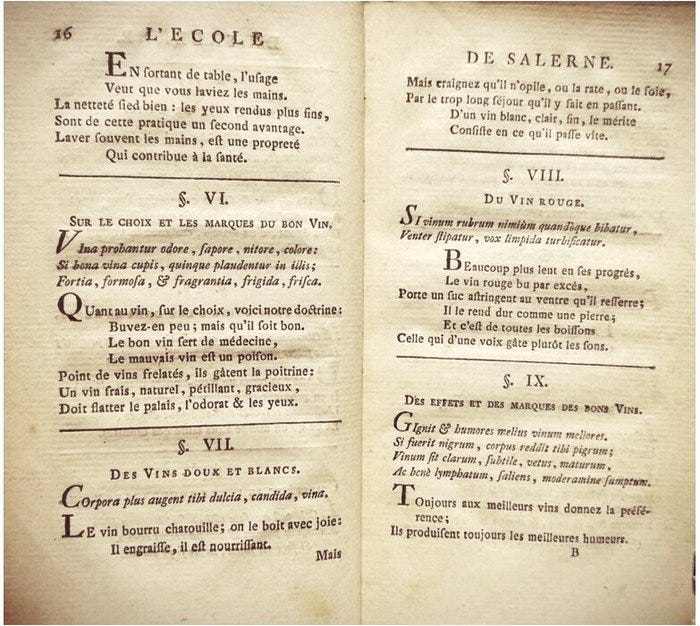 16 L'ECOLE
EN ſortant de table, l'uſage
Veut que vous laviez les mains.
La netteté ſied bien : les yeux rendus plus fins,
Sont de cette pratique un ſecond avantage.
Laver ſouvent les mains, eſt une propreté
Qui contribue à la ſanté.
§. VI.
SUR LE CHOIX ET LES MARQUES DU BON VIN.
Vina probantur odore, ſapore, nitore, colore:
Si bona vina cupis, quinque plaudentur in illis;
Fortia, formoſa, & fragrantia, frigida, friſca.
QUant au vin, ſur le choix, voici notre doctrine:
Buvez-en peu; mais qu'il ſoit bon.
Le bon vin ſert de médecine,
Le mauvais vin eſt un poiſon.
Point de vins frelatés, ils gâtent la poitrine:
Un vin frais, naturel, pétillant, gracieux,
Doit flatter le palais, l'odorat & les yeux.
§. VII.
DES VINS DOUX ET BLANCS.
COrpora plus augent tibi dulcia, candida, vina.
LE vin bourru chatouille; on le boit avec joie:
Il engraiſſe, il eſt nourriſſant.
Mais
DE SALERNE. 17
Mais craignez qu'il n'opile, ou la rate, ou le foie,
Par le trop long ſéjour qu'il y fait en paſſant.
D'un vin blanc, clair, fin, le mérite
Conſiſte en ce qu'il paſſe vîte.
§. VIII.
DU VIN ROUGE.
SI vinum rubrum nimiùm quandoque bibatur,
Venter ſtipatur, vox limpida turbificatur.
BEaucoup plus lent en ſes progrès,
Le vin rouge bu par excès,
Porte un ſuc aſtringent au ventre qu'il reſſerre;
Il le rend dur comme une pierre;
Et c'eſt de toutes les boiſſons
Celle qui d'une voix gâte plutôt les ſons.
§. IX.
DES EFFETS ET DES MARQUES DES BONS VINS.
GIgnit & humores melius vinum meliores.
Si fuerit nigrum, corpus reddit tibi pigrum;
Vinum ſit clarum, ſubtile, vetus, maturum,
Ac benè lymphatum, ſaliens, moderamine ſumptum.
TOujours aux meilleurs vins donnez la préfé-
rence;
Ils produiſent toujours les meilleures humeurs.
B